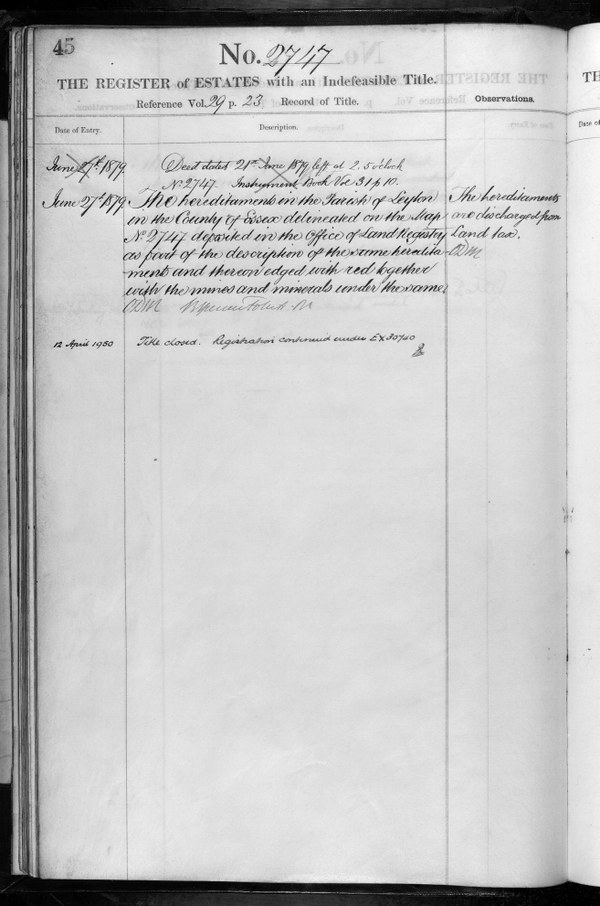 45
No. 2747
THE REGISTER of ESTATES with an Indefeasible Title.
Reference Vol. 29 p. 23 Record of Title. Observations.
Date of Entry. Description.
June 27th 1879 Deed dated 21st June 1879 left at 2.5 o'clock
No 2747. Instrument Book Vol 31 p 10.
June 27th 1879 The hereditaments in the Parish of Leyton
in the County of Essex delineated on the Map
No 2747 deposited in the Office of Land Registry
as part of the description of the same heredita-
ments and thereon edged with red together
with the mines and minerals under the same
The hereditaments
are discharged from
Land tax.
12 April 1950 Title closed. Registration continued under EX
TH
Date of